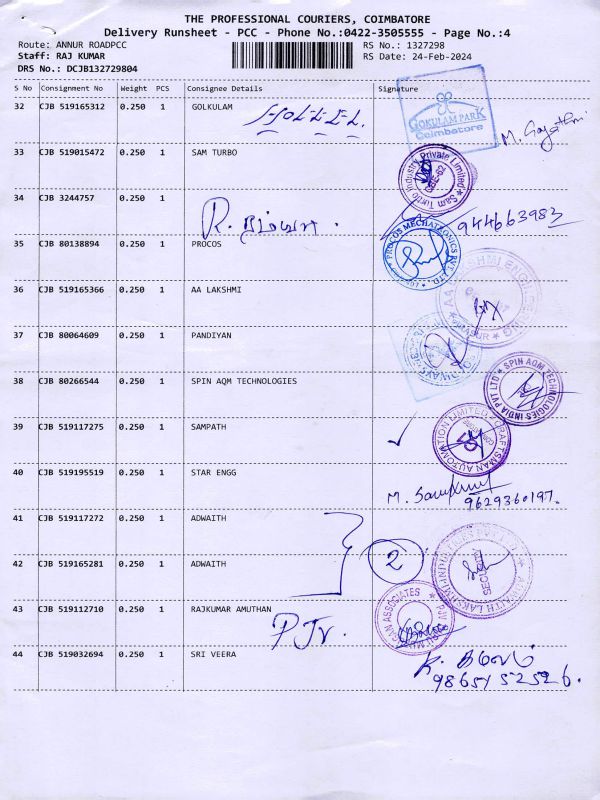 THE PROFESSIONAL COURIERS, COIMBATORE
Delivery Runsheet - PCC - Phone No.:0422-3505555 - Page No.:4
Route: ANNUR ROADPCC
RS No.: 1327298
Staff: RAJ KUMAR
RS Date: 24-Feb-2024
DRS No.: DCJB132729804
S No Consignment No Weight PCS Consignee Details Signature
32 CJB 519165312 0.250 1 GOLKULAM
GOKULAM PARK
Coimbatore
M. Gayathri
33 CJB 519015472 0.250 1 SAM TURBO
Sam Turbo Industry Private Limited
34 CJB 3244757 0.250 1
944663983
35 CJB 80138894 0.250 1 PROCOS
PROCOS MECHATRONICS PVT. LTD.
36 CJB 519165366 0.250 1 AA LAKSHMI
37 CJB 80064609 0.250 1 PANDIYAN
38 CJB 80266544 0.250 1 SPIN AQM TECHNOLOGIES
SPIN AQM TECHNOLOGIES INDIA PVT LTD
39 CJB 519117275 0.250 1 SAMPATH
CRAFTSMAN AUTOMATION LIMITED
40 CJB 519195519 0.250 1 STAR ENGG
9629360197.
41 CJB 519117272 0.250 1 ADWAITH
2
42 CJB 519165281 0.250 1 ADWAITH
SECURITY
43 CJB 519112710 0.250 1 RAJKUMAR AMUTHAN
PJV.
44 CJB 519032694 0.250 1 SRI VEERA
9865752526.